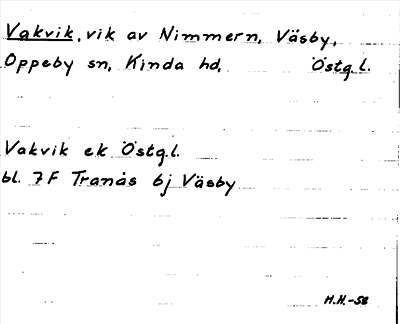 Vakvik, vik av Nimmern, Väsby,
Oppeby sn, Kinda hd, Östg.l.
Vakvik ek Östg.l.
bl. 7F Tranås 6j Väsby
H.H.-58